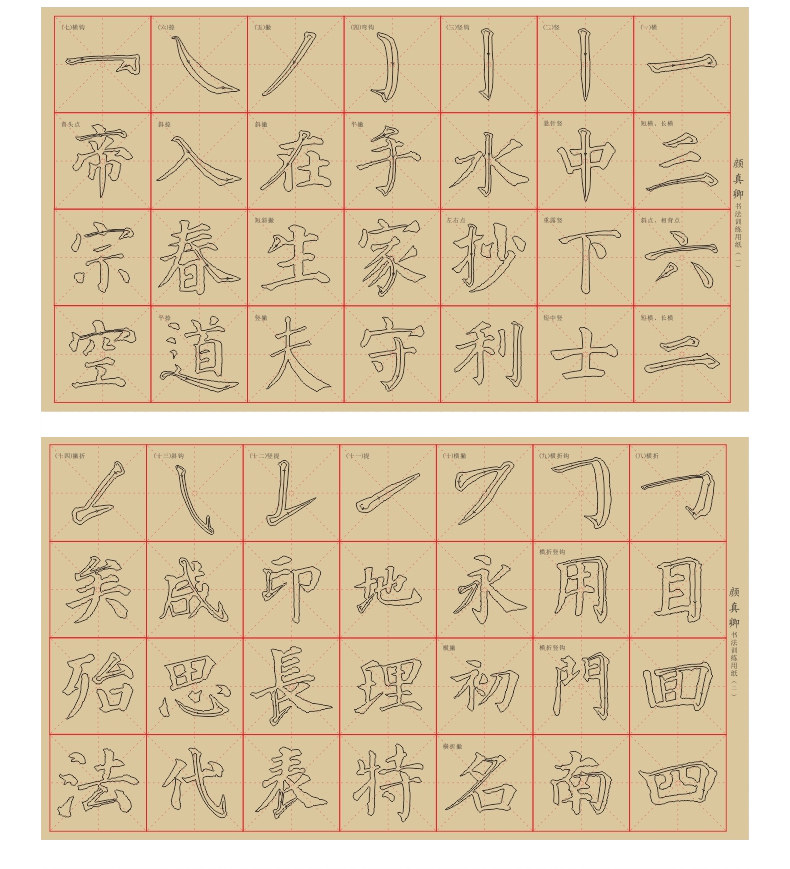 颜真卿书法训练用纸(一)
(一)横
一
短横、长横
三
斜点、相背点
六
短横、长横
二
(二)竖
悬针竖
中
垂露竖
下
短中竖
士
(三)竖钩
水
左右点
抄
利
(四)弯钩
平撇
手
家
守
(五)撇
斜撇
在
短斜撇
生
竖撇
夫
(六)捺
斜捺
入
春
平捺
道
(七)横钩
帝
宗
空
颜真卿书法训练用纸(二)
(八)横折
目
回
四
(九)横折钩
横折竖钩
用
横折竖钩
門
南
(十)横撇
永
横撇
初
横折撇
名
(十一)提
地
理
特
(十二)竖提
印
長
表
(十三)斜钩
咸
思
代
(十四)撇折
矣
殆
法